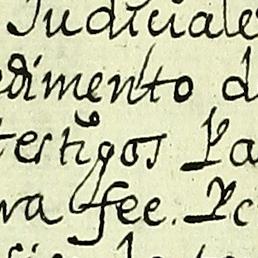 Judiciale
edimento d
testigos Pa
ra fee. Pc